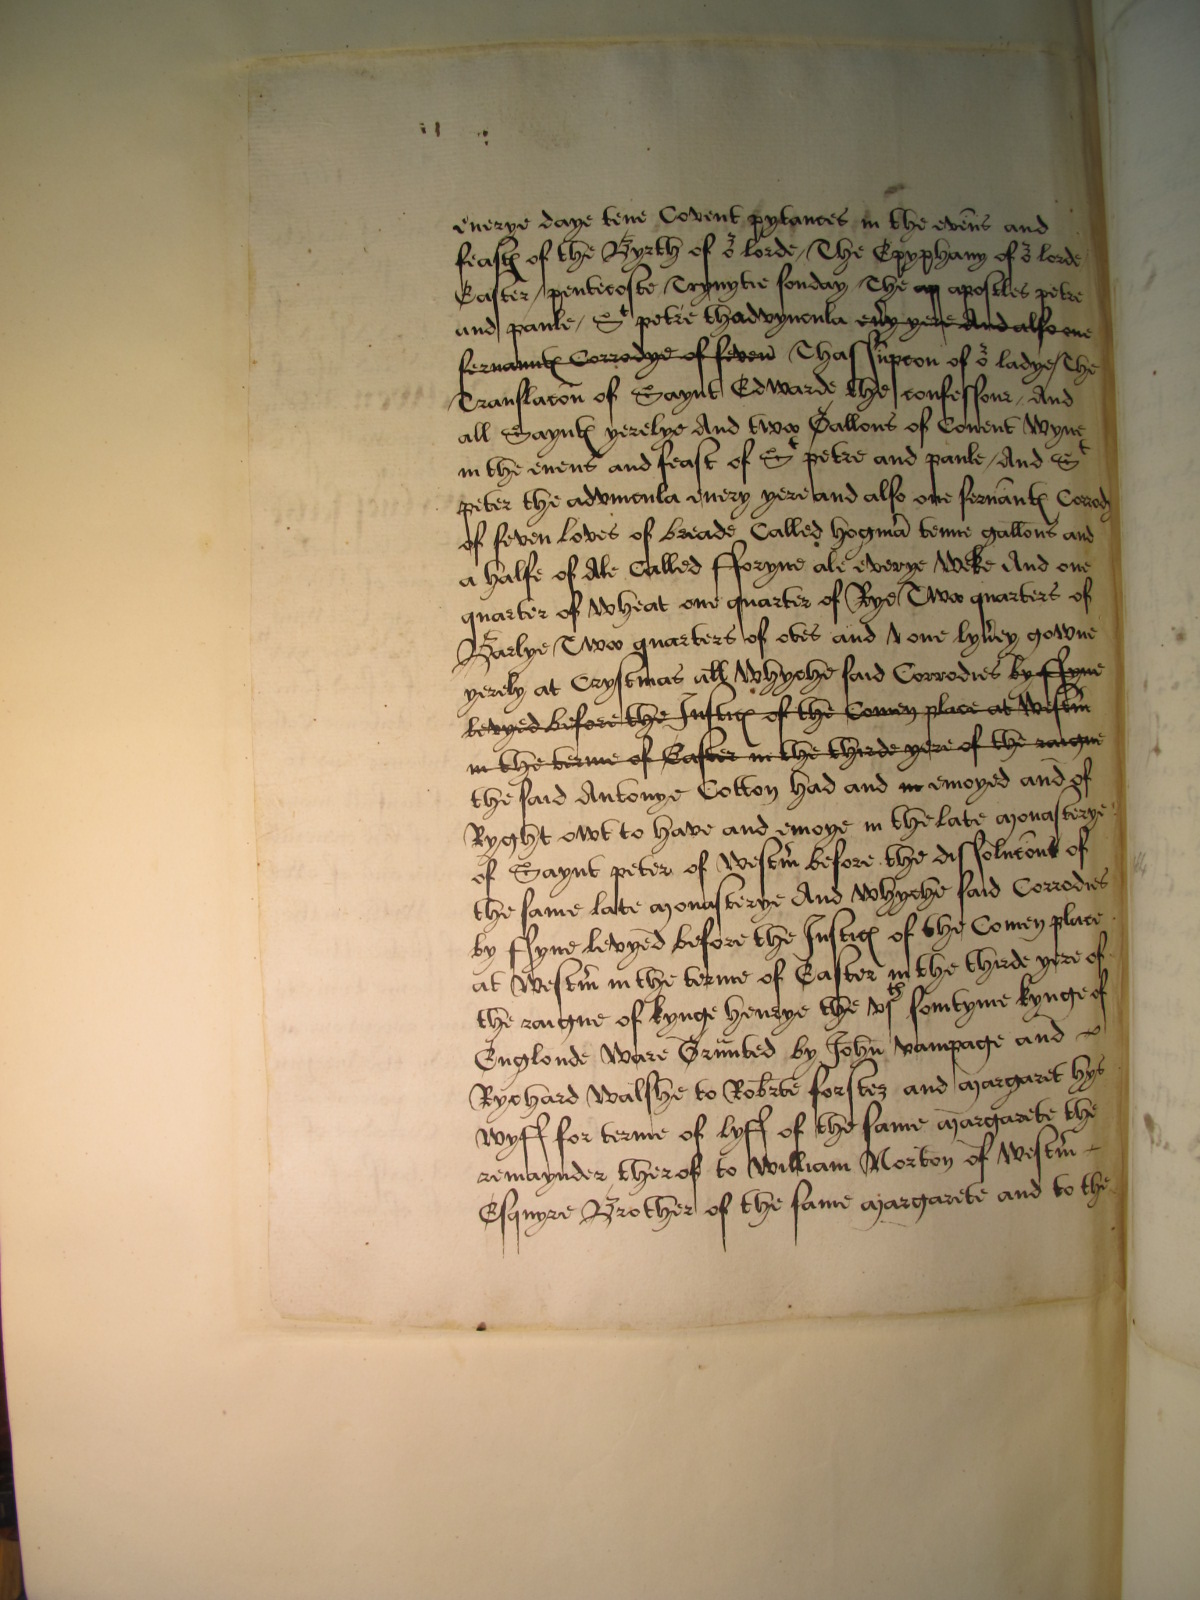 euerye daye tene Covent pytances in the evens and
feast(es) of the Byrth of or lorde / The Epyphany of or lorde
Easter / pentecoste Trynytie sonday The ap apostles petre
and paule / St petre thadvyncula eu(er)y yere And also one
seruaunt(es) Corrodye of seven Thassu(m)pcon of or ladye / The
Translacon of Saynt Edwarde the confessour / And
all Saynt(es) yerelye And twoo Gallons of Couent Wyne
in the euens and feast of St petre and paule / And St
peter the advincula euery yere and also one seruant(es) Corrody
of seven loves of breade Called hogma(n) tenne gallons and
a halfe of Ale Called fforyne ale everye Weke And one
quarter of Wheat one quarter of Rye / Twoo quarters of
Barlye / Twoo quarters of otes and one lyuey gowne
yerely at Crystmas all Whyche said Corrodies by ffyne
levyed before the Justic(es) of the Comen place at Westm
in the terme of Easter in the thirde yere of the raigne
the said Antonye Cotton had and in enioyed and of
Ryght owt to have and enioye in the late monasterye
of Saynt peter of Westm before the dissolucon of
the same late monasterye And Whyche said Corrodies
by ffyne levyed before the Justic(es) of the Comen place
at Westm in the terme of Easter in the thirde yere of
the raigne of kynge henrye the vjth somtyme kynge of
Englonde Ware Graunted by John vampage and
Rychard Walshe to Rob(er)te forster and margaret hys
Wyff for terme of lyff of the same margarete the
remaynder therof to William Norton of Westm
Esquyre Brother of the same margarete and to the